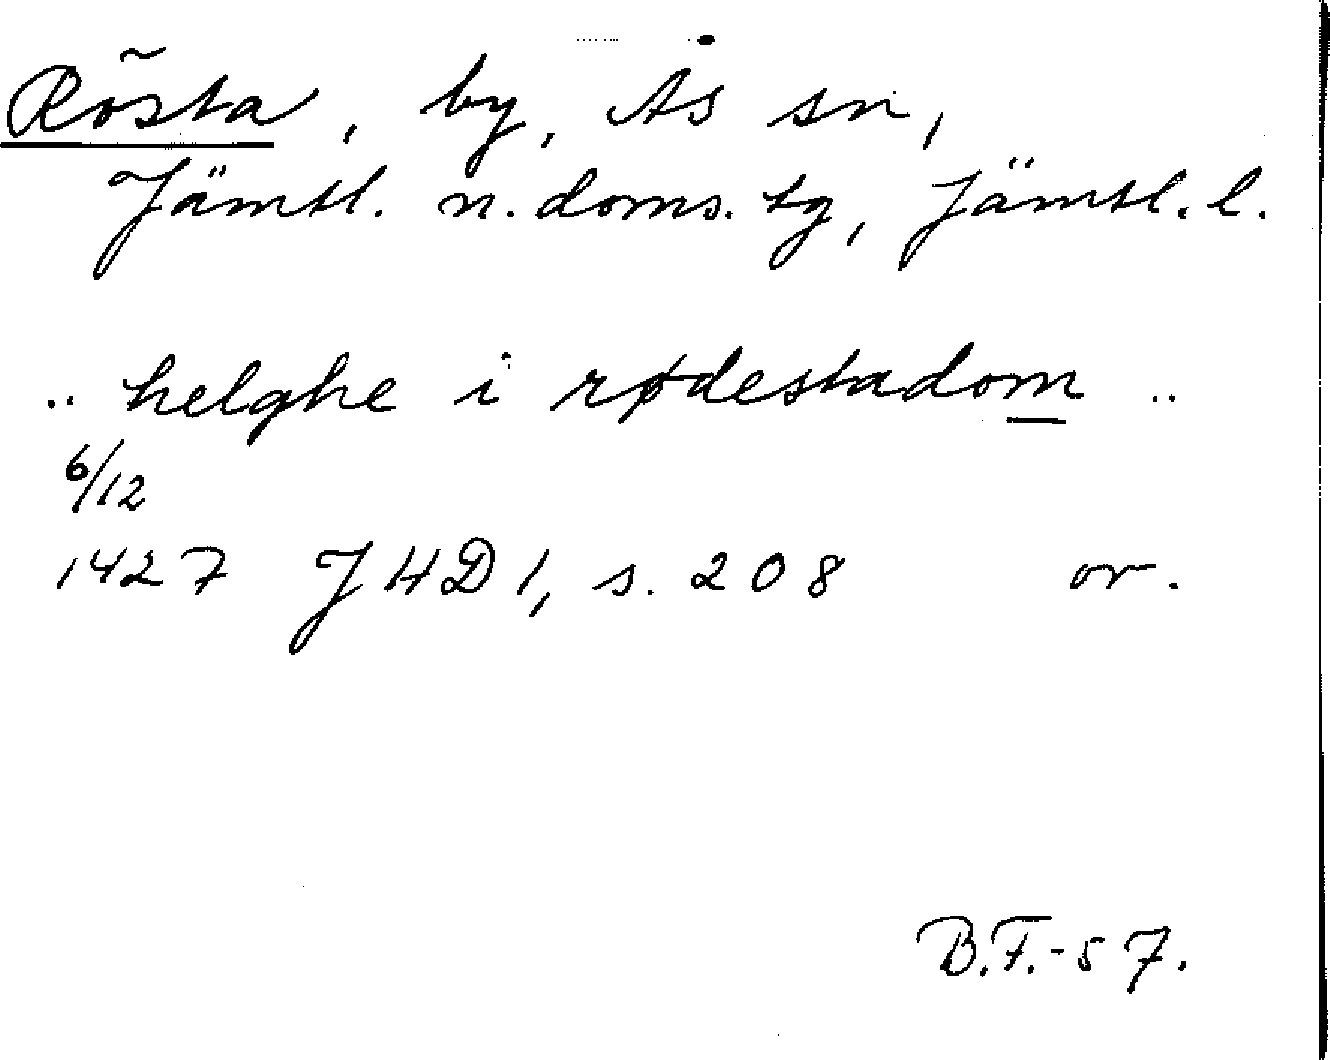 Rösta, by, Ås sn,
Jämtl. n. doms. tg, Jämtl. l.
.. helghe i rødestadom ..
6/12
1427 JHD 1, s. 208 or.
B.F.-57.